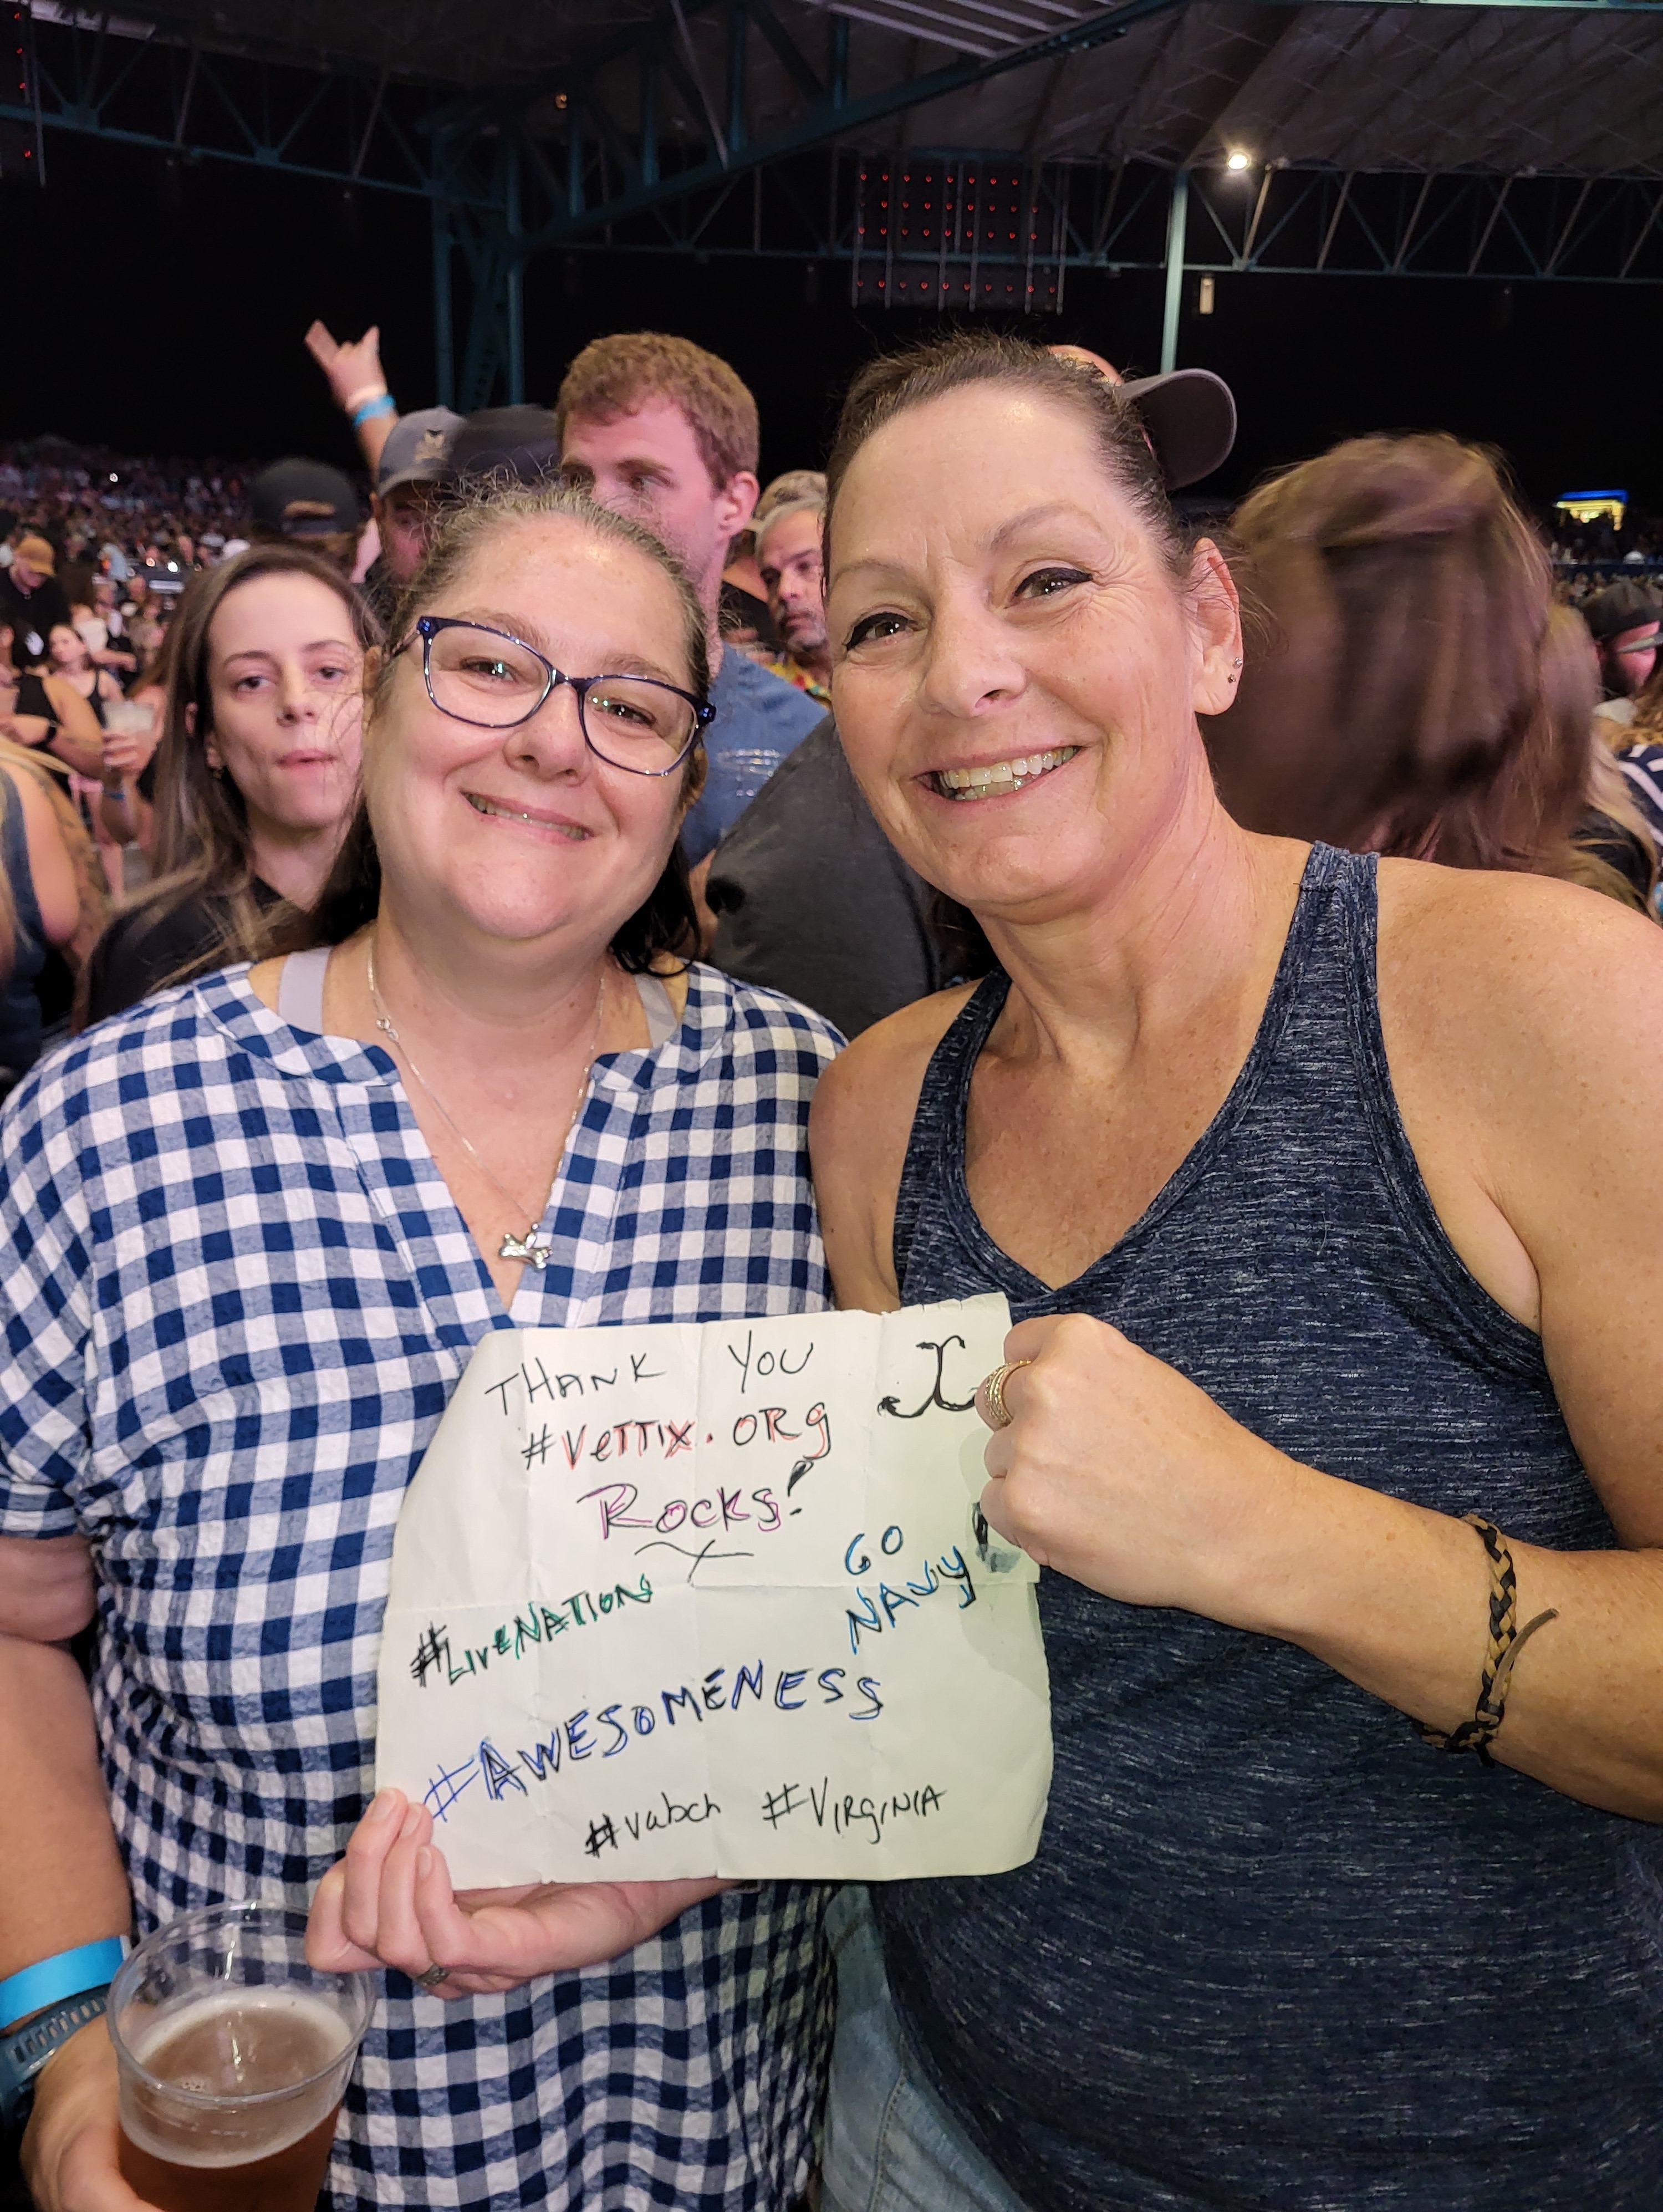 THANK YOU
#VETTIX.ORg
ROCKS!
GO
NAVY
#LiveNATION
#AWESOMENESS
#vabch #VIRgINIA